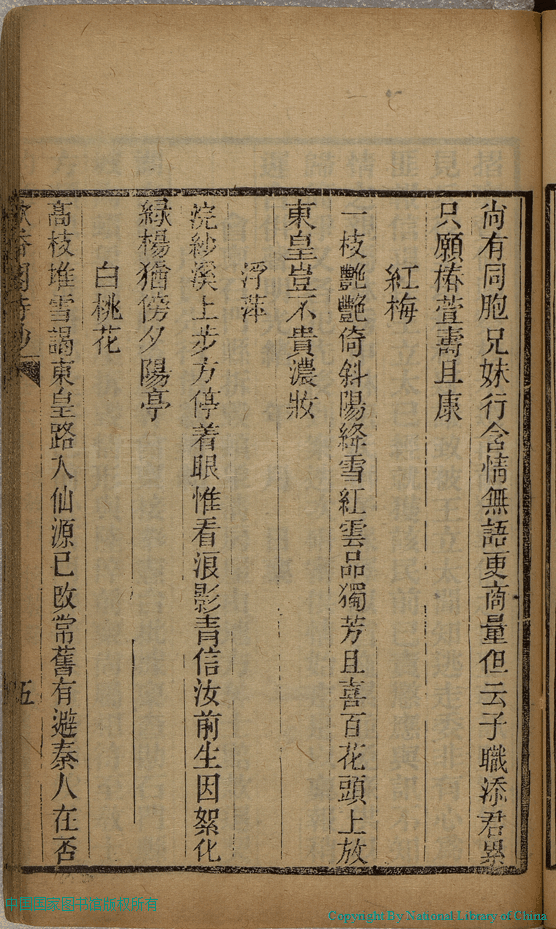 尙有同胞兄妹行含情無語更商量但云子職添君累
只願椿萱壽且康
紅梅
一枝艷艷倚斜陽絳雪紅雲品獨芳且喜百花頭上放
東皇豈不貴濃妝
浮萍
浣紗溪上步方停着眼惟看浪影青信汝前生因絮化
綠楊猶傍夕陽亭
白桃花
高枝堆雪謁東皇路入仙源已改常舊有避秦人在否
五
中国国家图书馆版权所有
Copyright By National Library of China